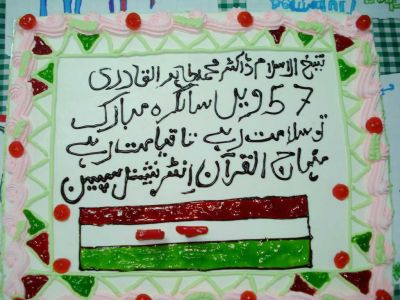 شیخ الاسلام ڈاکٹر محمد طاہر القادری
57 ویں سالگرہ مبارک
تو سلامت رہے تا قیامت رہے
منہاج القرآن انٹرنیشنل سپین